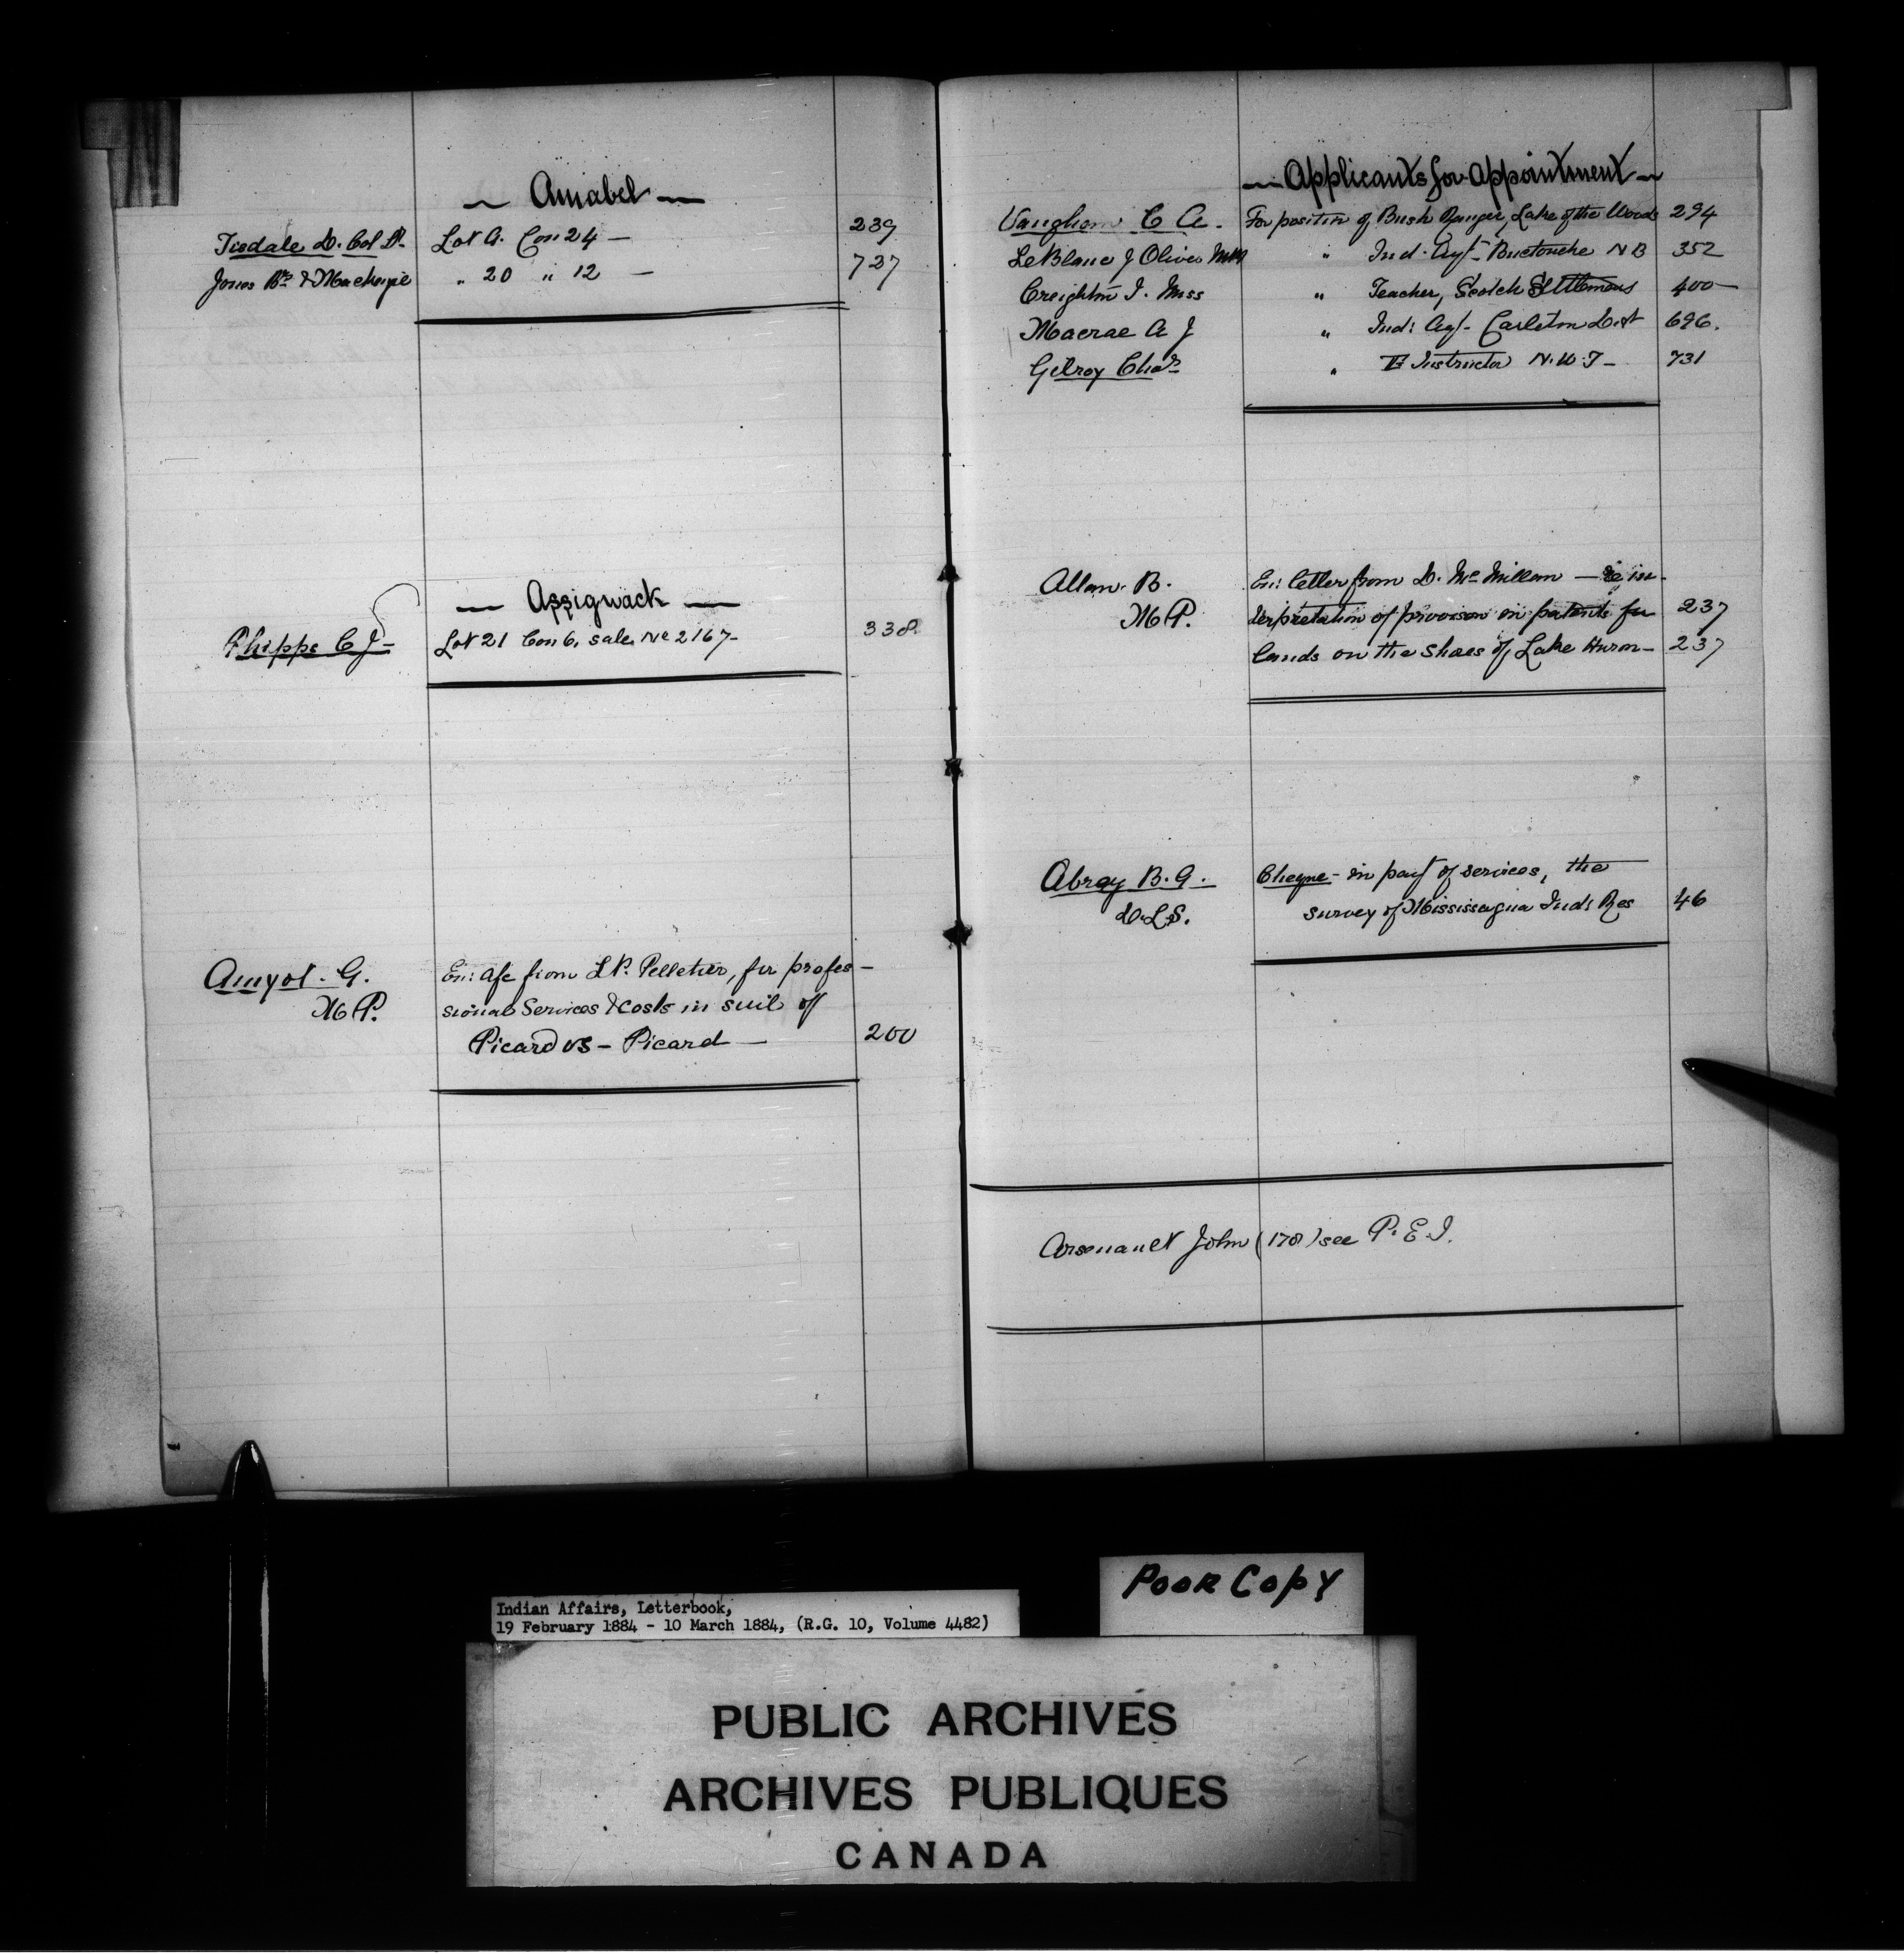 — Amabel —
Tisdale D. Col Dr. Lot A. Con 24 — 239
Jones Bros & Mackenzie " 20 " 12 — 727
— Assigwack —
Phipps C J — Lot 21 Con 6, sale No 2167 — 338
Amyot. G. En: a/c from L P. Pelletier, for profes-
M P. sional Services & Costs in suit of
Picard vs — Picard — 200
— Applicants for Appointment —
Vaughan C A. For position of Bush Ranger, Lake of the Woods 294
LeBlanc J Oliver " Ind. Agt- Buctouche N B 352
Creighton I. Miss " Teacher, Scotch Settlement 400 —
Macrae A J " Ind: Agt- Carleton Dist 696.
Gilroy Chas " Instructor N. W. T — 731
Allan. B. En: letter from D. McMillan — re in-
M P. terpretation of provision in patents for 237
lands on the shores of Lake Huron — 237
Abrey B. G. Cheque - in part of services, the
D. L. S. survey of Mississagua Ind: Res 46
Arsenault John (178) see P. E. I.
Poor Copy
Indian Affairs, Letterbook,
19 February 1884 - 10 March 1884, (R.G. 10, Volume 4482)
PUBLIC ARCHIVES
ARCHIVES PUBLIQUES
CANADA